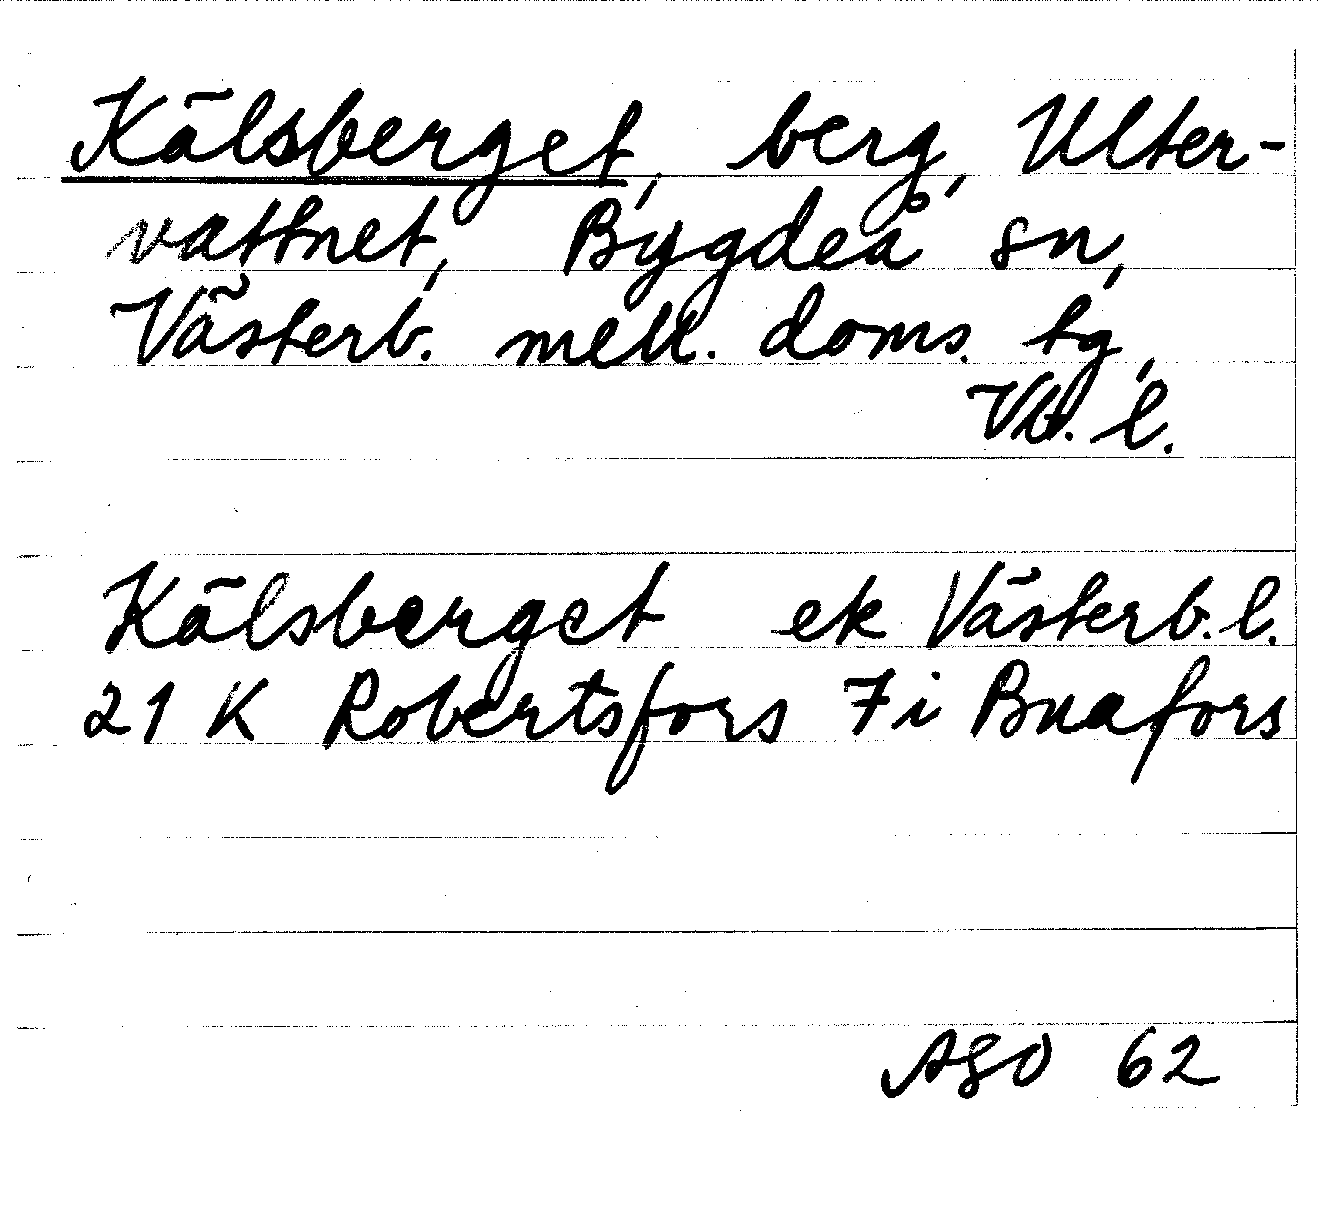 Kälsberget, berg, Ulter-
vattnet, Bygdeå sn,
Västerb. mell. doms. tg,
Vb. l.
Kälsberget ek Västerb. l.
21 K Robertsfors 7i Buafors
ASO 62